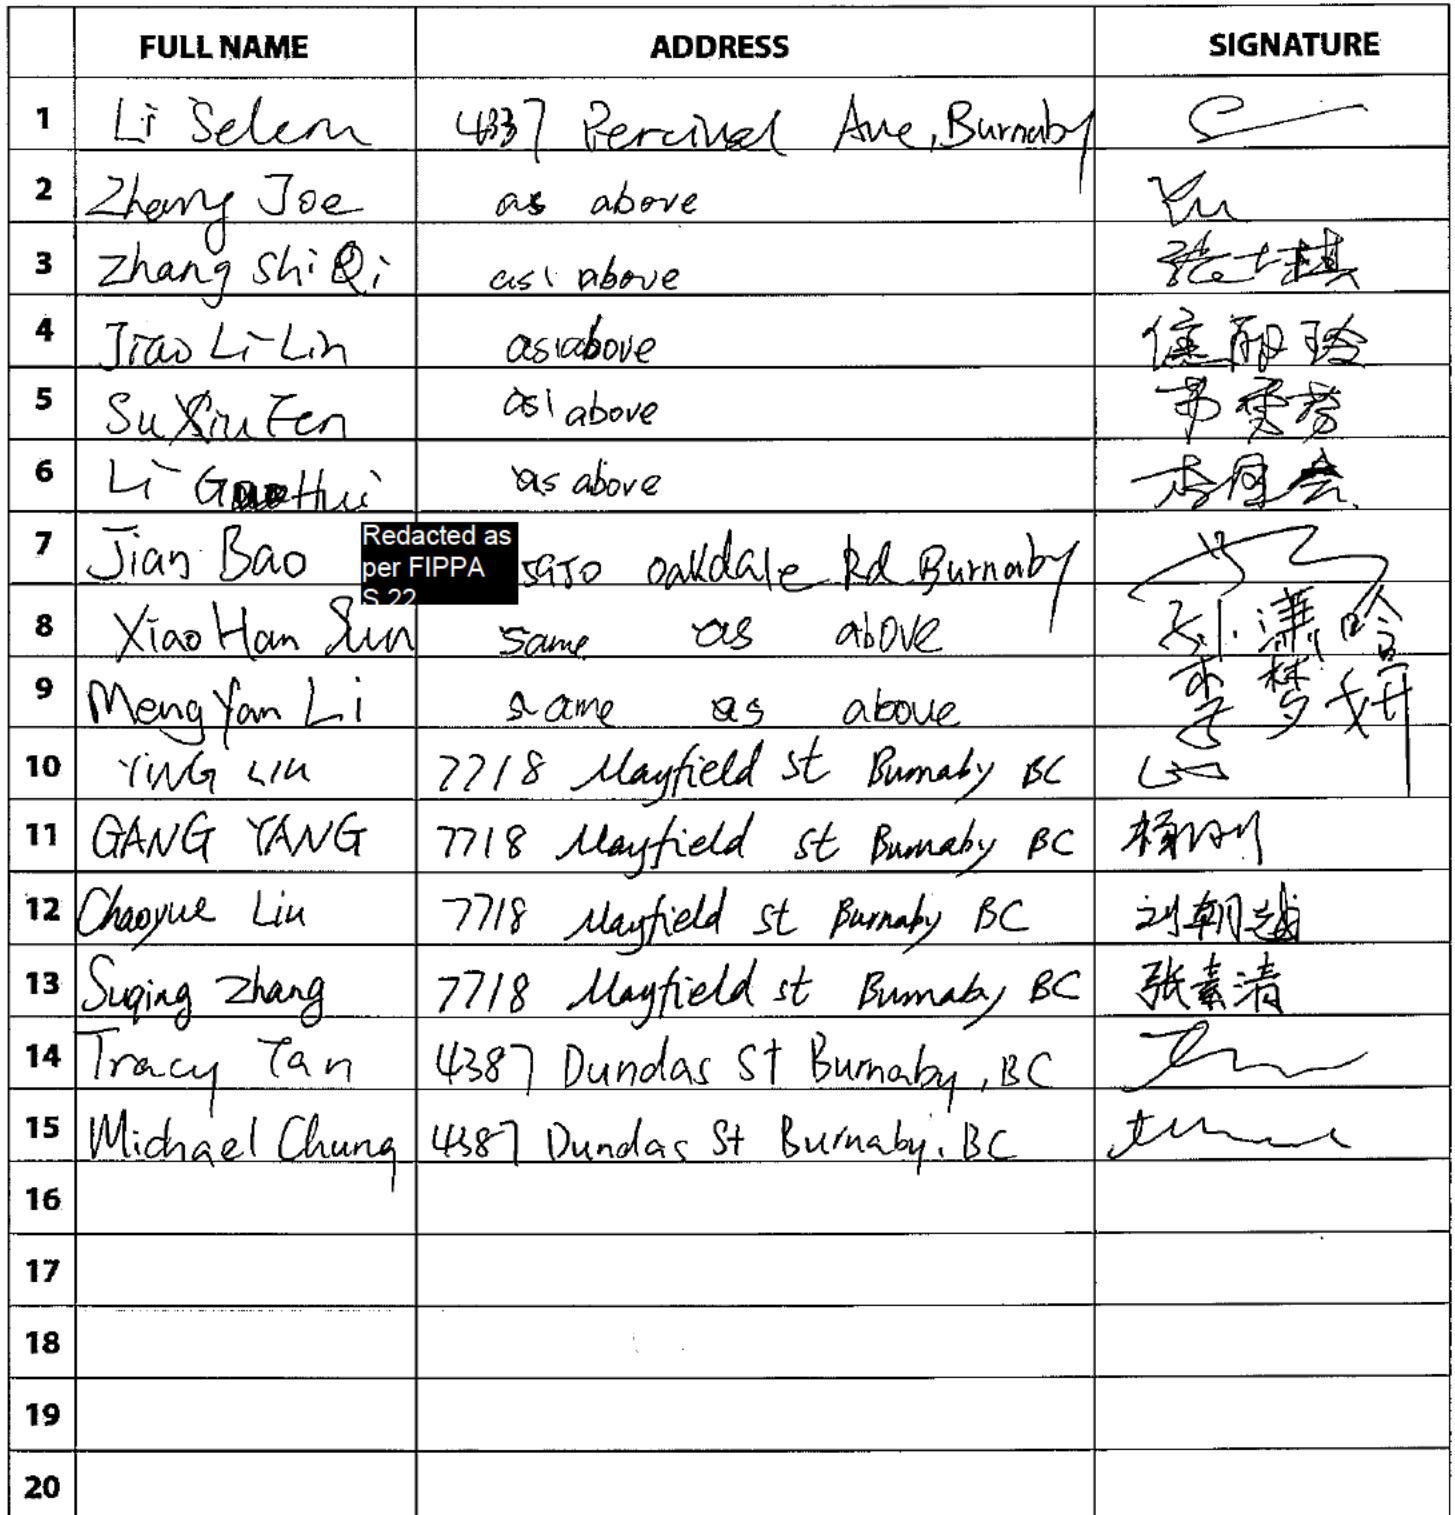 FULL NAME ADDRESS SIGNATURE
1 Li Selem 4337 Percival Ave, Burnaby
2 Zhang Joe as above Yu
3 Zhang Shi Qi as above 张士琪
4 Jiao Li-Lin as above
5 Su Xiu Fen as above
6 Li GuoHui as above 李国会
7 Jian Bao Redacted as per FIPPA S.22 5950 Oakdale Rd Burnaby
8 Xiao Han Sun same as above 孙潇晗
9 Meng Yan Li same as above 李梦妍
10 YING LIU 7718 Mayfield St Burnaby BC
11 GANG YANG 7718 Mayfield St Burnaby BC 杨刚
12 Chaoyue Liu 7718 Mayfield St Burnaby BC 刘朝越
13 Suqing Zhang 7718 Mayfield St Burnaby BC 张素清
14 Tracy Tan 4387 Dundas St Burnaby, BC
15 Michael Chung 4387 Dundas St Burnaby, BC
16
17
18
19
20